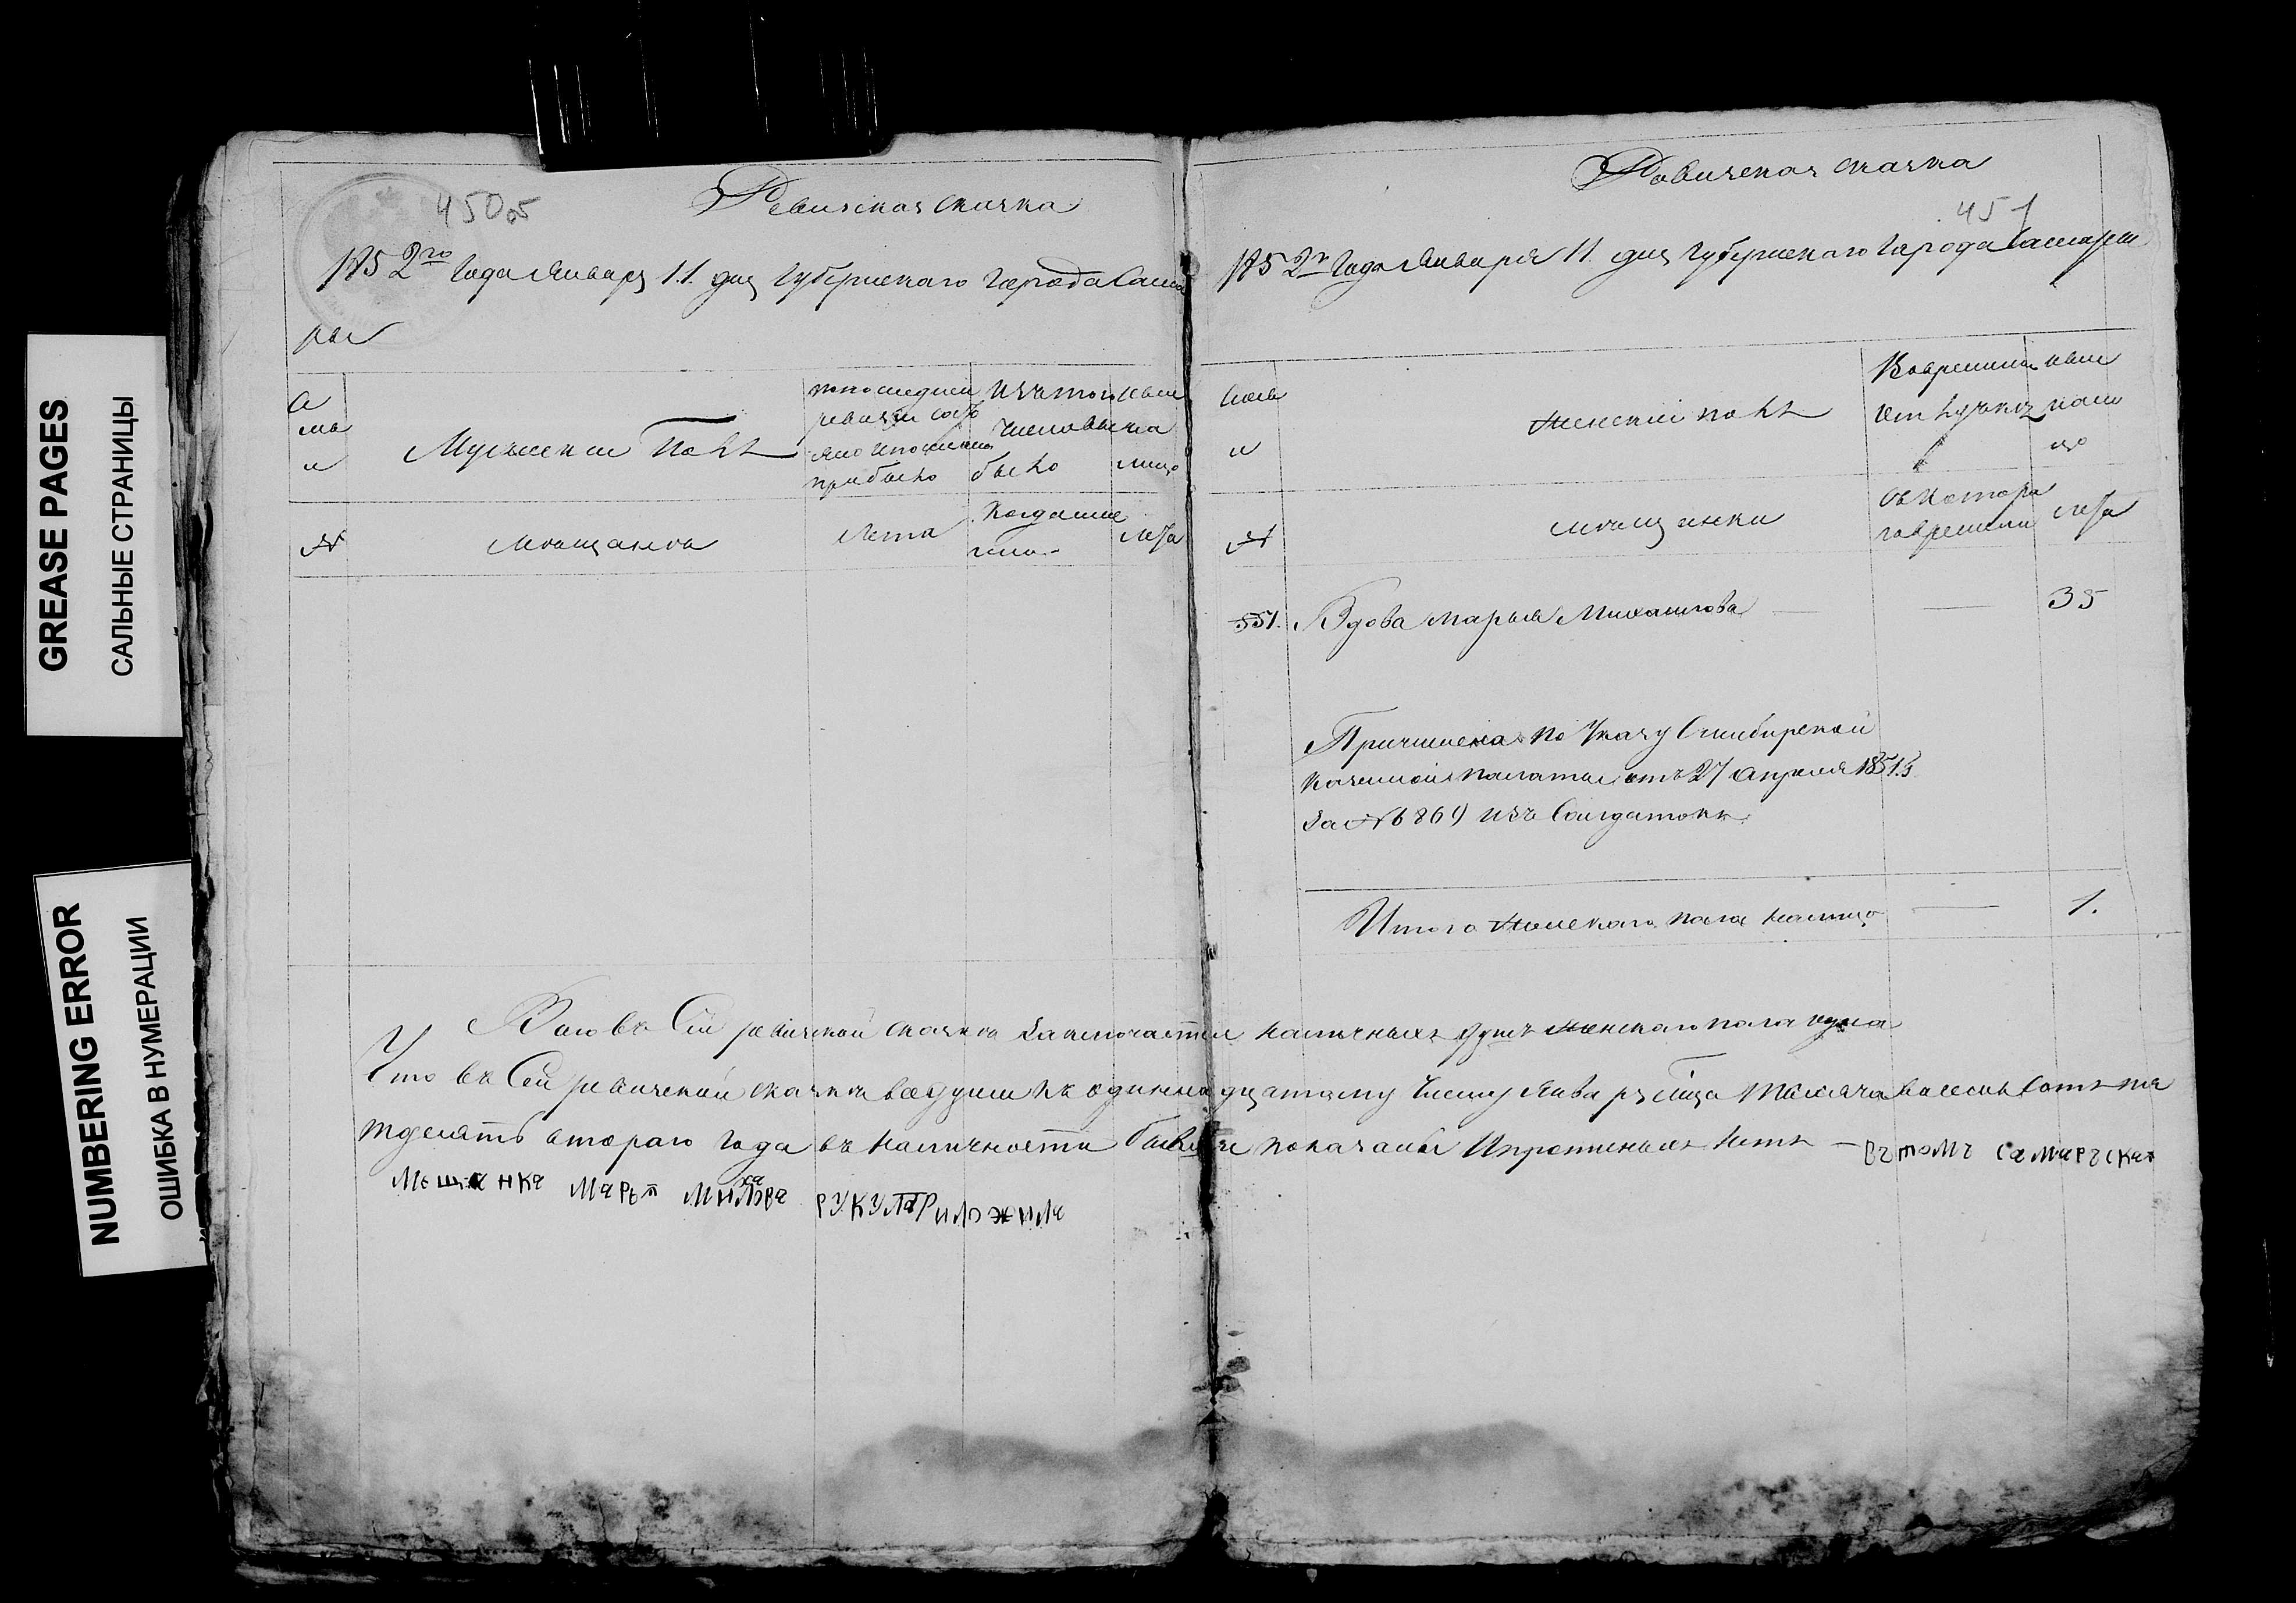 GREASE PAGES
САЛЬНЫЕ СТРАНИЦЫ
NUMBERING ERROR
ОШИБКА В НУМЕРАЦИИ
450 об
Ревизская сказка
1852го Года Января 11. дня Губернскаго Города Сама
ры
Се
мьи
Мужеский Полъ
по последней
ревизии состо
яло и после
прибыло
Изъ того
числа выбыло
ныне
на
лицо
№
мещане
Лета
Когда именно
лета
Ревизская сказка
451
1852го Года Января 11. дня Губернскаго Города Самары
Семьи
Женский полъ
Во временной
отлучке
ныне
нали
цо
№
мещанки
Съ котораго
времени
лета
551. Вдова марья Михаилова — — 35
Причислена по Указу Симбирской
казенной палаты отъ 27 апреля 1851 г.
за № 6869 изъ Солдатокъ.
Итого женскаго пола налицо — 1.
Всего въ Сей ревизской сказке заключается наличныхъ душъ женскаго пола одна
Что въ Сей ревизской сказке все души къ одиннадцатому числу Января м̃ца тысяча восемь сотъ пя
тдесятъ втораго года въ наличности бывшие показаны и прописныхъ нетъ — въ томъ самаръская
мещанка марья михалова руку приложила